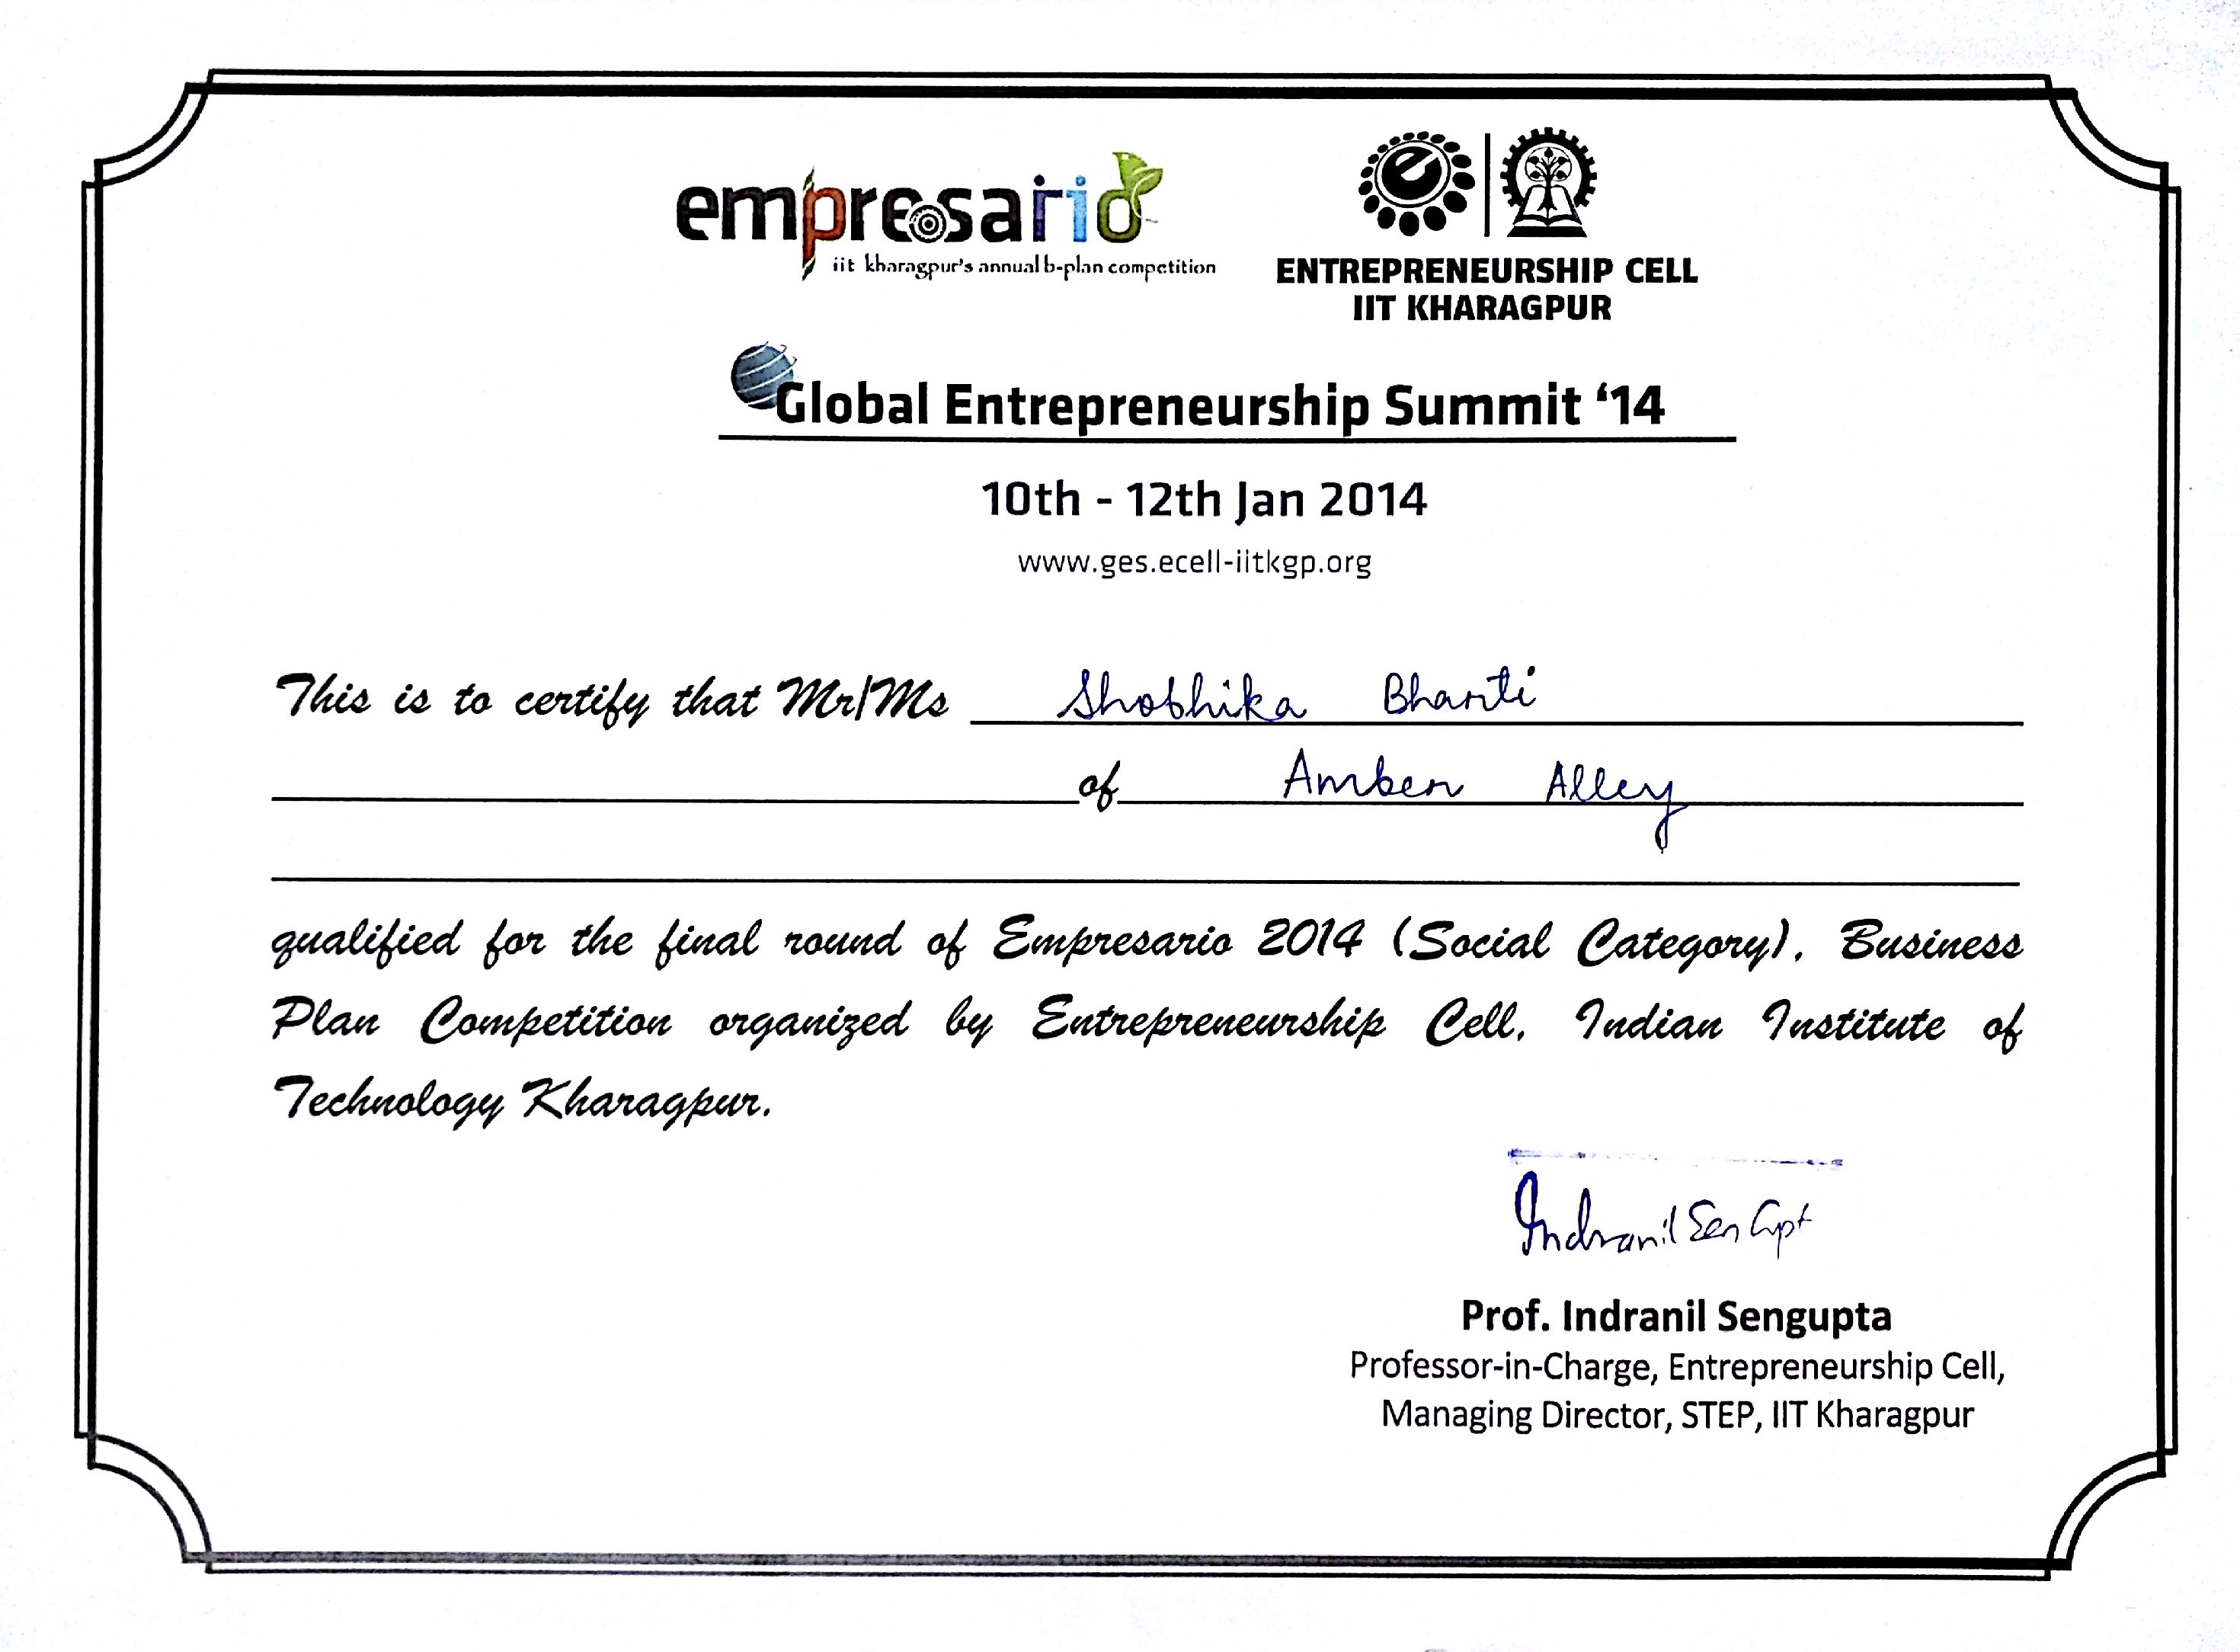 empresario
iit kharagpur's annual b-plan competition
ENTREPRENEURSHIP CELL
IIT KHARAGPUR
Global Entrepreneurship Summit ‘14
10th - 12th Jan 2014
www.ges.ecell-iitkgp.org
This is to certify that Mr/Ms Shobhika Bharti
of Amber Alley
qualified for the final round of Empresario 2014 (Social Category), Business
Plan Competition organized by Entrepreneurship Cell, Indian Institute of
Technology Kharagpur.
Indranil Sen Gpt
Prof. Indranil Sengupta
Professor-in-Charge, Entrepreneurship Cell,
Managing Director, STEP, IIT Kharagpur